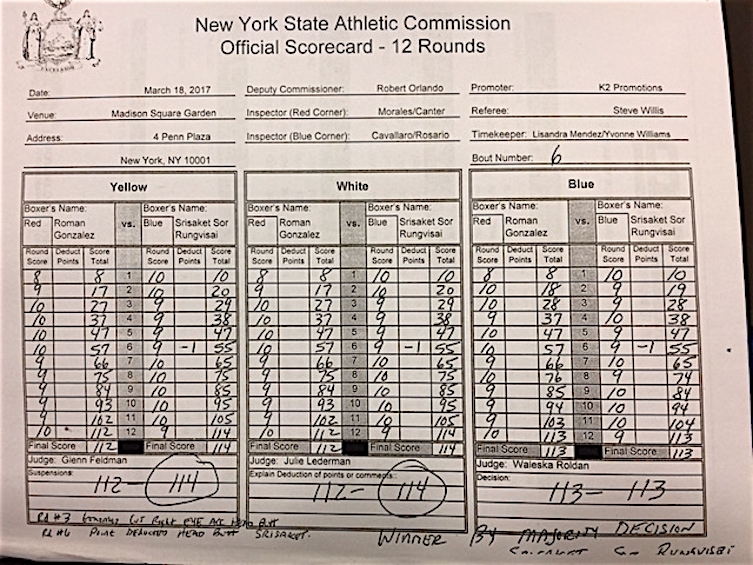 New York State Athletic Commission
Official Scorecard - 12 Rounds
EXCELSIOR
Date: March 18, 2017 Deputy Commissioner: Robert Orlando Promoter: K2 Promotions
Venue: Madison Square Garden Inspector (Red Corner): Morales/Canter Referee: Steve Willis
Address: 4 Penn Plaza Inspector (Blue Corner): Cavallaro/Rosario Timekeeper: Lisandra Mendez/Yvonne Williams
New York, NY 10001 Bout Number: 6
Yellow White Blue
Boxer's Name: Boxer's Name: Boxer's Name: Boxer's Name: Boxer's Name: Boxer's Name:
Red Roman vs. Blue Srisaket Sor Red Roman vs. Blue Srisaket Sor Red Roman vs. Blue Srisaket Sor
Gonzalez Rungvisai Gonzalez Rungvisai Gonzalez Rungvisai
Round Deduct Score Round Deduct Score Round Deduct Score Round Deduct Score Round Deduct Score Round Deduct Score
Score Points Total Score Points Total Score Points Total Score Points Total Score Points Total Score Points Total
8 8 1 10 10 8 8 1 10 10 8 8 1 10 10
9 17 2 10 20 9 17 2 10 20 10 18 2 9 19
10 27 3 9 29 10 27 3 9 29 10 28 3 9 28
10 37 4 9 38 10 37 4 9 38 9 37 4 10 38
10 47 5 9 47 10 47 5 9 47 10 47 5 9 47
10 57 6 9 -1 55 10 57 6 9 -1 55 10 57 6 9 -1 55
9 66 7 10 65 9 66 7 10 65 9 66 7 10 65
9 75 8 10 75 9 75 8 10 75 10 76 8 9 74
9 84 9 10 85 9 84 9 10 85 9 85 9 10 84
9 93 10 10 95 9 93 10 10 95 9 94 10 10 94
9 102 11 10 105 9 102 11 10 105 9 103 11 10 104
10 112 12 9 114 10 112 12 9 114 10 113 12 9 113
Final Score 112 Final Score 114 Final Score 112 Final Score 114 Final Score 113 Final Score 113
Judge: Glenn Feldman Judge: Julie Lederman Judge: Waleska Roldan
Suspensions: Explain Deduction of points or comments: Decision:
112 - 114 112 - 114 113 - 113
Rd #3 Gonzalez Cut Right Eye Acc Head Butt
Rd #6 Point Deducted Head Butt Srisaket.
WINNER BY MAJORITY DECISION
Srisaket Sor Rungvisai